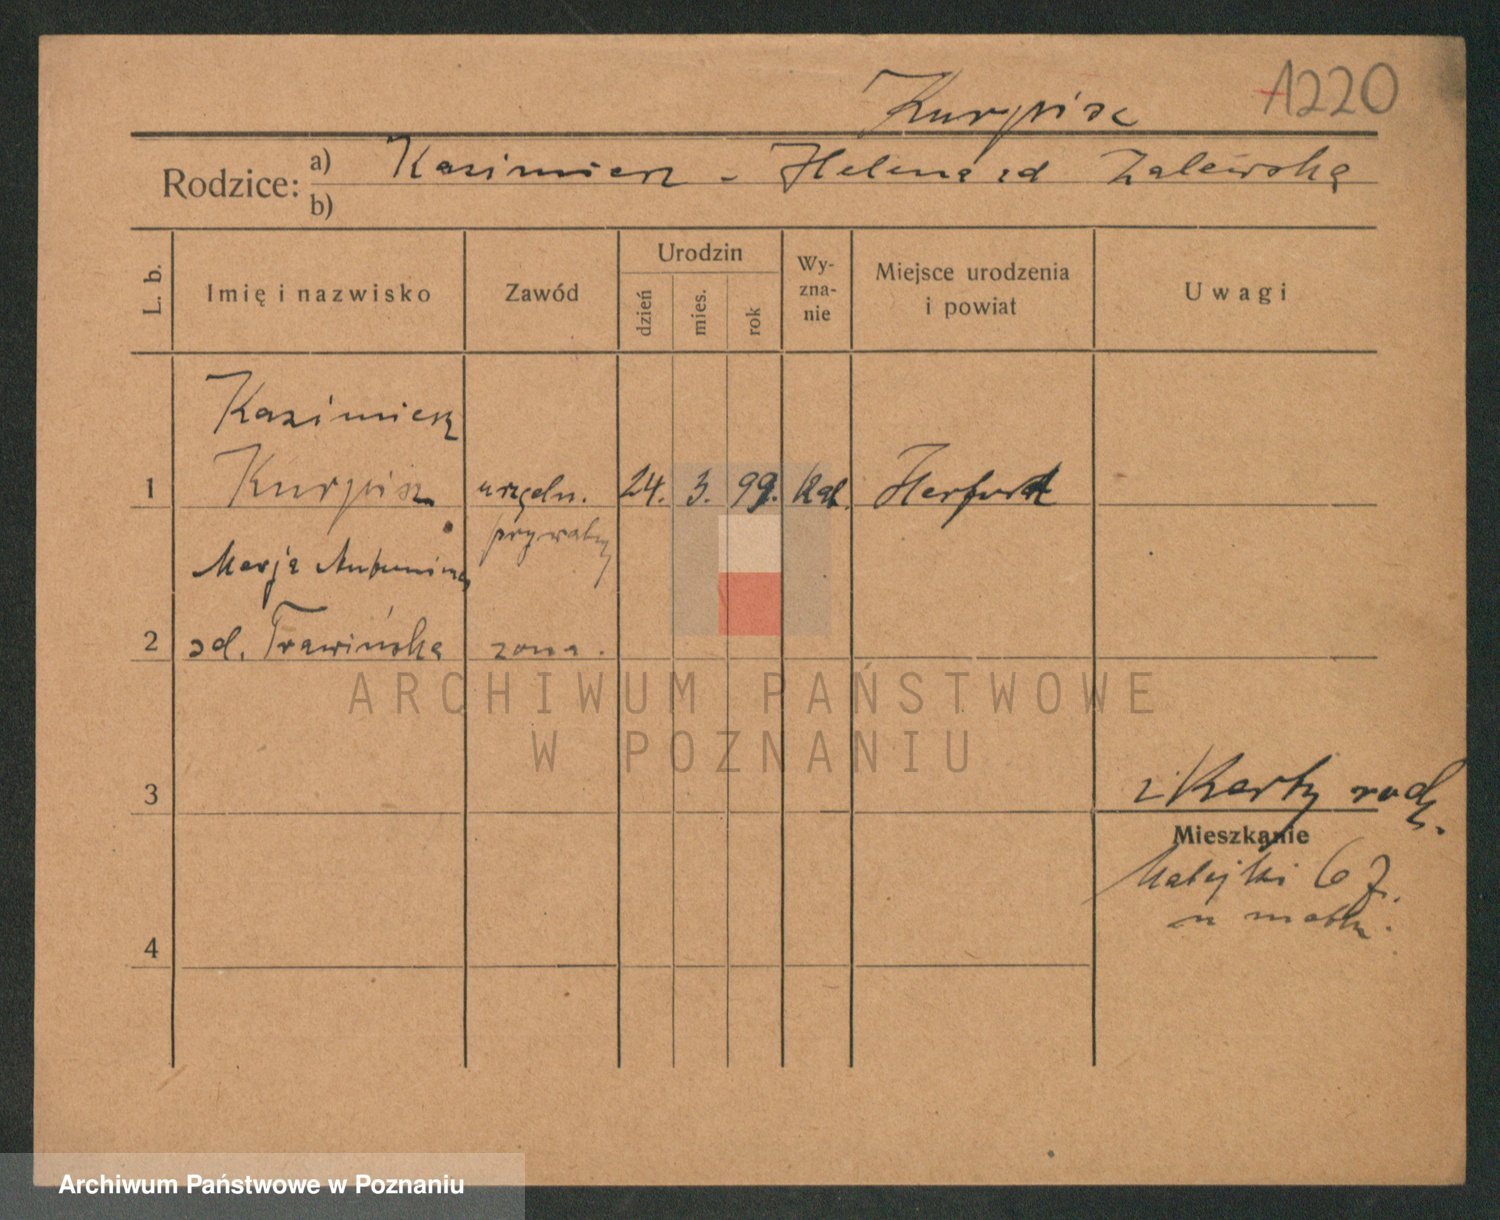 Kurpisz
1220
Rodzice:
a) Kazimierz - Helena zd Zalewska
b)
L. b.
Imię i nazwisko
Zawód
Urodzin
dzień
mies.
rok
Wy-
zna-
nie
Miejsce urodzenia
i powiat
Uwagi
Kazimierz
1 Kurpisz urzędn. 24. 3. 99. kat. Herford
prywatny
Marja Antonina
2 zd. Trawińska żona.
ARCHIWUM PAŃSTWOWE
W POZNANIU
3
z Karty rodz.
Mieszkanie
Matejki 67.
u matki.
4
Archiwum Państwowe w Poznaniu